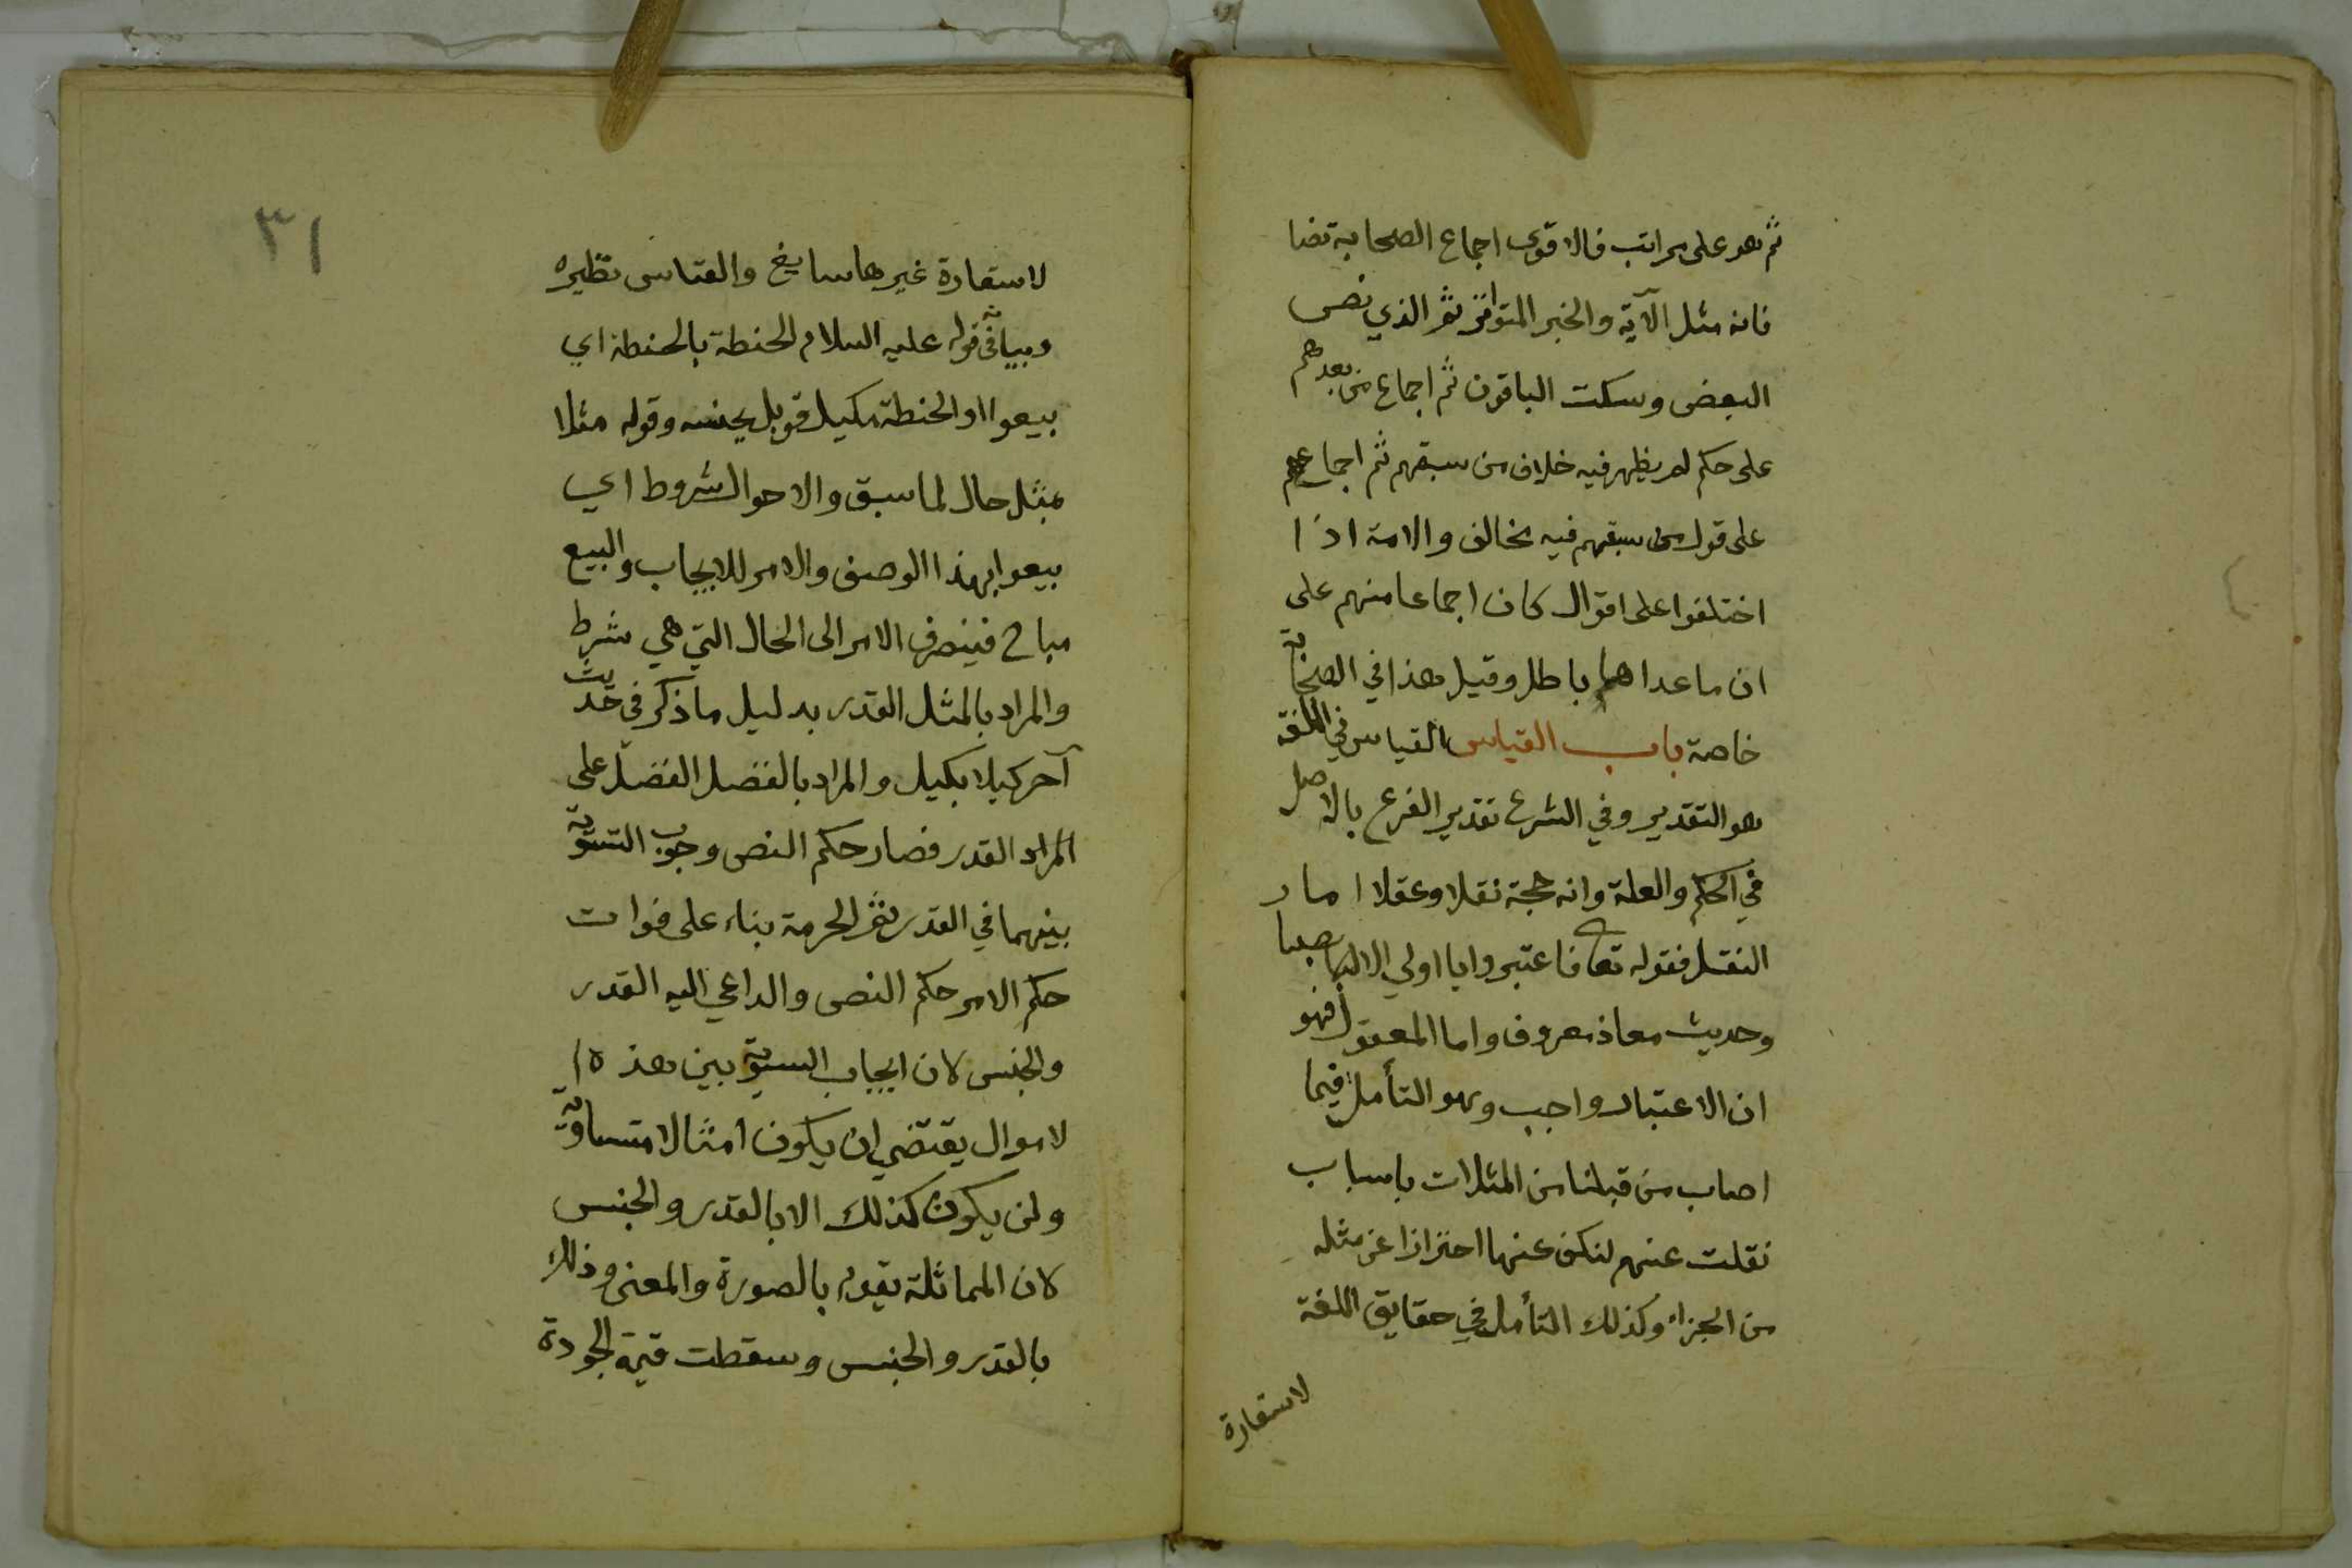 ثم هو على مراتب فالاقوى اجماع الصحابة نصا
فانه مثل الآية والخبر المتواتر ثم الذي نص
البعض وسكت الباقون ثم اجماع من بعدهم
على حكم لم يظهر فيه خلاف من سبقهم ثم اجماعهم
على قول من سبقهم فيه مخالف والامة اذا
اختلفوا على اقوال كان اجماعا منهم على
ان ما عداها باطل وقيل هذا في الصحابة
خاصة باب القياس القياس في اللغة
هو التقدير وفي الشرع تقدير الفرع بالاصل
في الحكم والعلة وانه حجة نقلا وعقلا اما
النقل فقوله تعا فاعتبروا يا اولي الابصار
وحديث معاذ معروف واما المعقول فهو
ان الاعتبار واجب وهو التأمل فيما
اصاب من قبلنا من المثلات باسباب
نقلت عنهم لنكف عنها احترازا عن مثله
من الجزاء وكذلك التأمل في حقايق اللغة
لاستعارة
٣١
لاستعارة غيرها سايغ والقياس نظيره
وبيانه في قوله عليه السلام الحنطة بالحنطة اي
بيعوا او الحنطة مكيل قوبل بجنسه وقوله مثلا
بمثل حال لما سبق والاحوال شروط اي
بيعوا بهذا الوصف والامر للايجاب والبيع
مباح فينصرف الامر الى الحال التي هي شرط
والمراد بالمثل القدر بدليل ما ذكر في حديث
آخر كيلا بكيل والمراد بالفضل الفضل على
المراد القدر فصار حكم النص وجوب التسوية
بينهما في القدر ثم الحرمة بناء على فوات
حكم الامر حكم النص والداعي اليه القدر
والجنس لان ايجاب السوية بين هذه ا
لاموال يقتضي ان يكون امثالا متساوية
ولن يكون كذلك الا بالقدر والجنس
لان المماثلة يقوم بالصورة والمعنى وذلك
بالقدر والجنس وسقطت قيمة الجودة